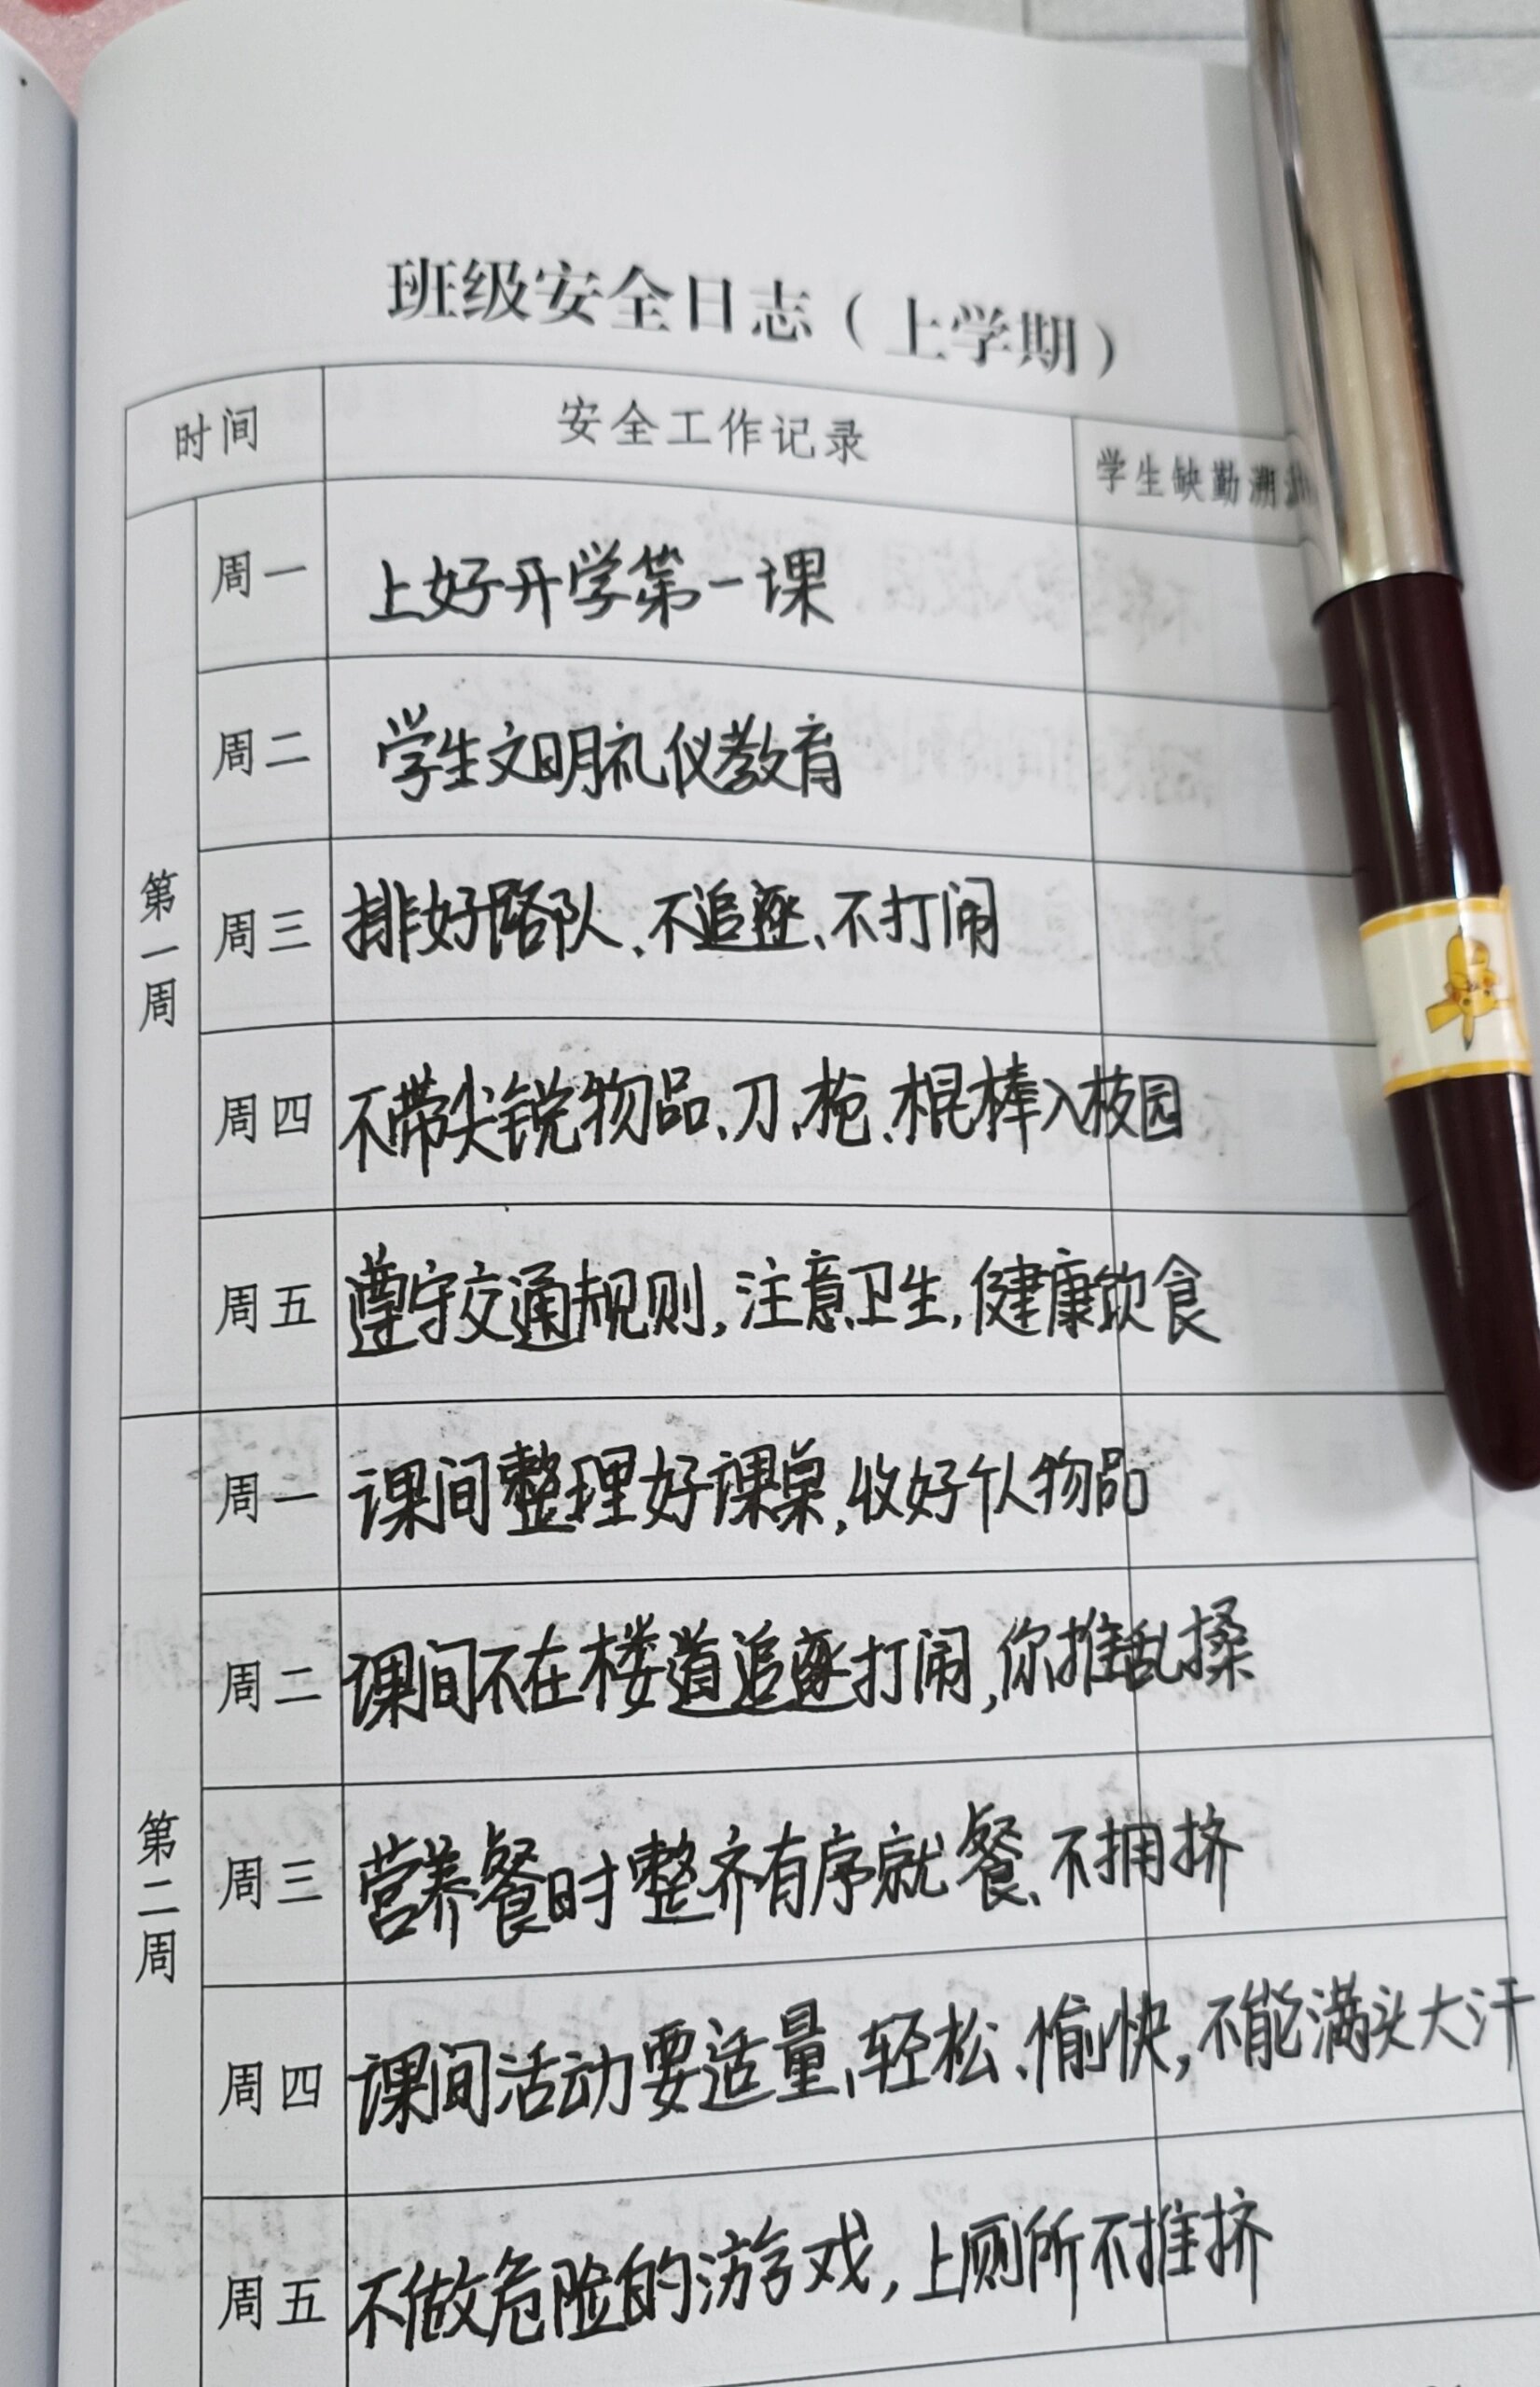 班级安全日志（上学期）
时间 安全工作记录 学生缺勤溯
第一周
周一 上好开学第一课
周二 学生文明礼仪教育
周三 排好路队、不追逐、不打闹
周四 不带尖锐物品、刀、枪、棍棒入校园
周五 遵守交通规则,注意卫生,健康饮食
第二周
周一 课间整理好课桌,收好个人物品
周二 课间不在楼道追逐打闹,你推乱搡
周三 营养餐时整齐有序就餐、不拥挤
周四 课间活动要适量、轻松、愉快,不能满头大汗
周五 不做危险的游戏,上厕所不推挤